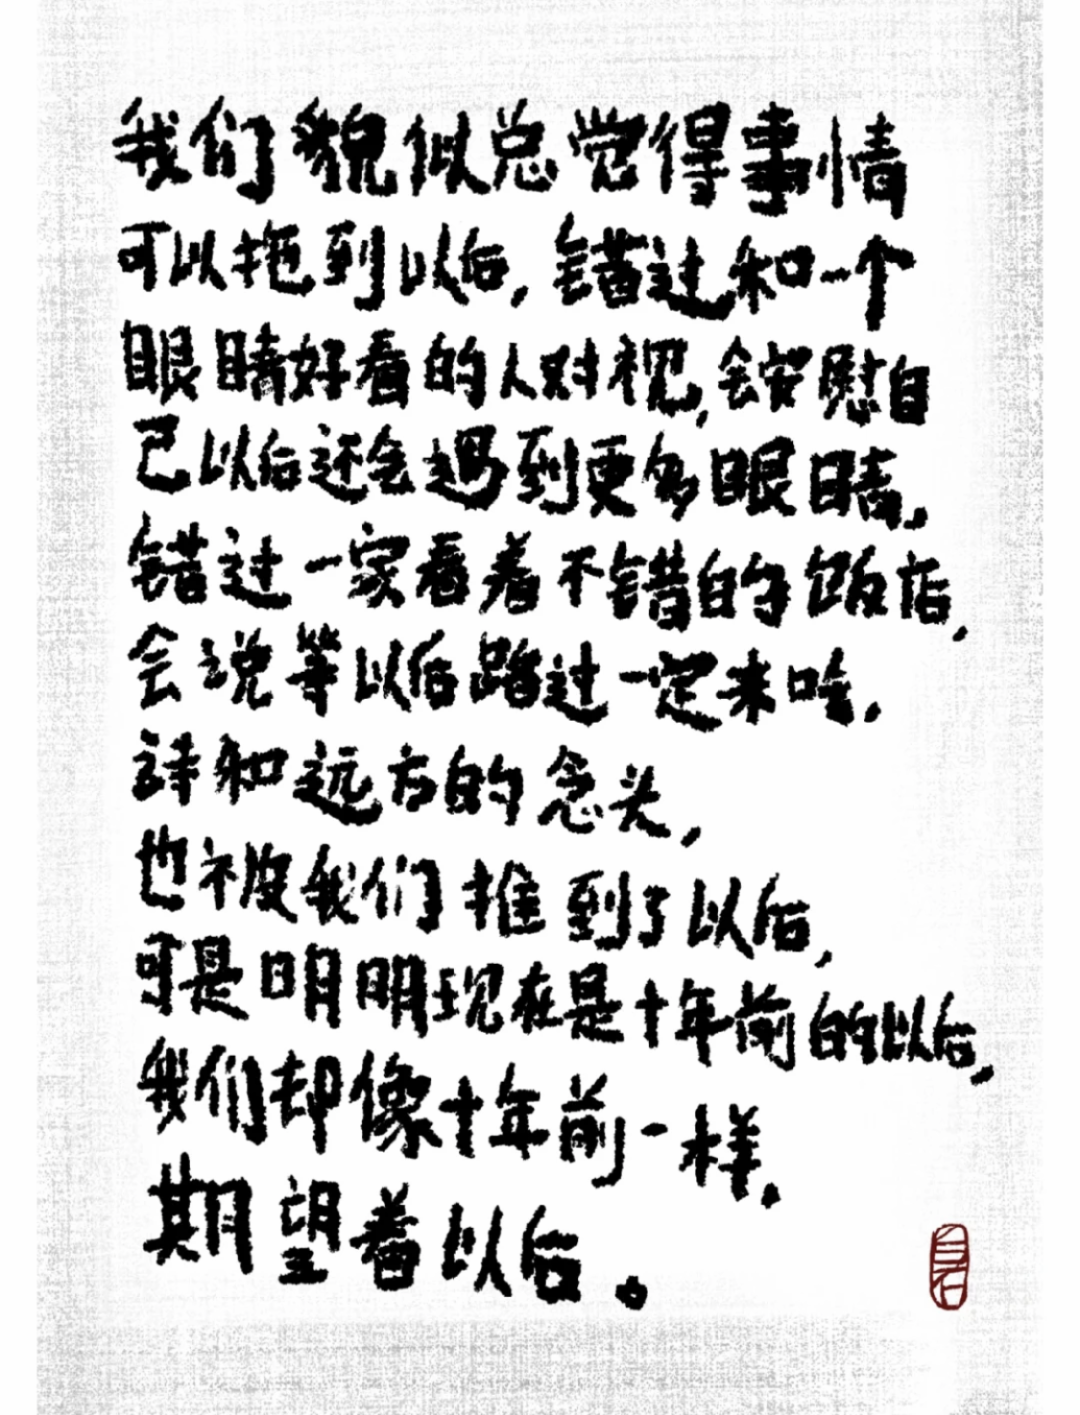 我们貌似总觉得事情
可以拖到以后,错过和一个
眼睛好看的人对视,会安慰自
己以后还会遇到更多眼睛,
错过一家看着不错的饭店,
会说等以后路过一定来吃.
诗和远方的念头,
也被我们推到了以后,
可是明明现在是十年前的以后,
我们却像十年前一样.
期望着以后。